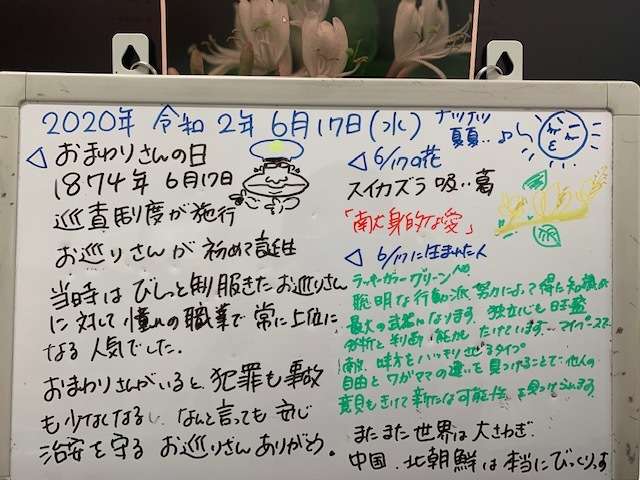 2020年 令和2年 6月17日(水)
ナツナツ
夏夏・・♪
◁ おまわりさんの日
1874年 6月17日
巡査制度が施行
お巡りさんが 初めて誕生
当時は びしっと制服きたお巡りさん
に対して 憧れの職業で 常に上位に
なる人気でした。
おまわりさんがいると、犯罪も事故
も少なくなるし、なんと言っても 安心
治安を守る お巡りさんありがとう。
◁ 6/17の花
スイカズラ 吸い葛
「献身的な愛」
◁ 6/17に生まれた人
ラッキーカラーグリーン
聡明な行動派 努力によって得た知識が
最大の武器になります。独立心も旺盛
分析と判断能力もたけています。マイペースで
敵、味方をハッキリさせるタイプ
自由とワガママの違いを見つけることで、他人の
意見もきけて新たな可能性を見つけられます。
またまた世界は大さわぎ、
中国、北朝鮮は本当にびっくりっす